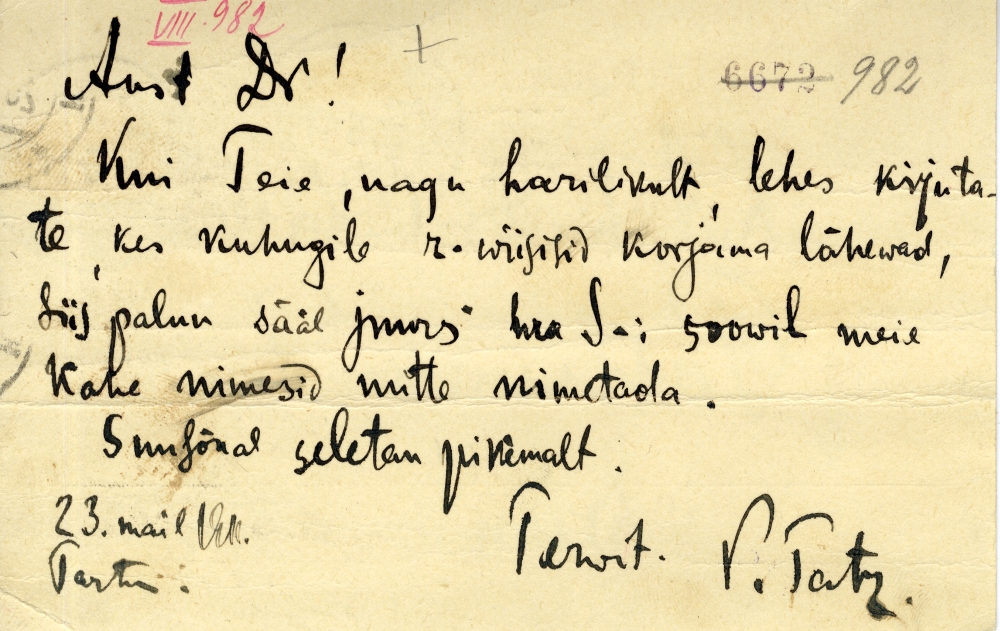 VIII. 982
6672 982
Aust Dr!
Kui Teie, nagu harilikult, lehes kirjuta-
te, kes kuhugile r. wiisisid korjama lähewad,
siis palun sääl juures hra S-i soowil meie
kahe nimesid mitte nimetada.
Suusõnal seletan pikemalt.
23. mail
Tartu.
Terwit. P. Tatz.